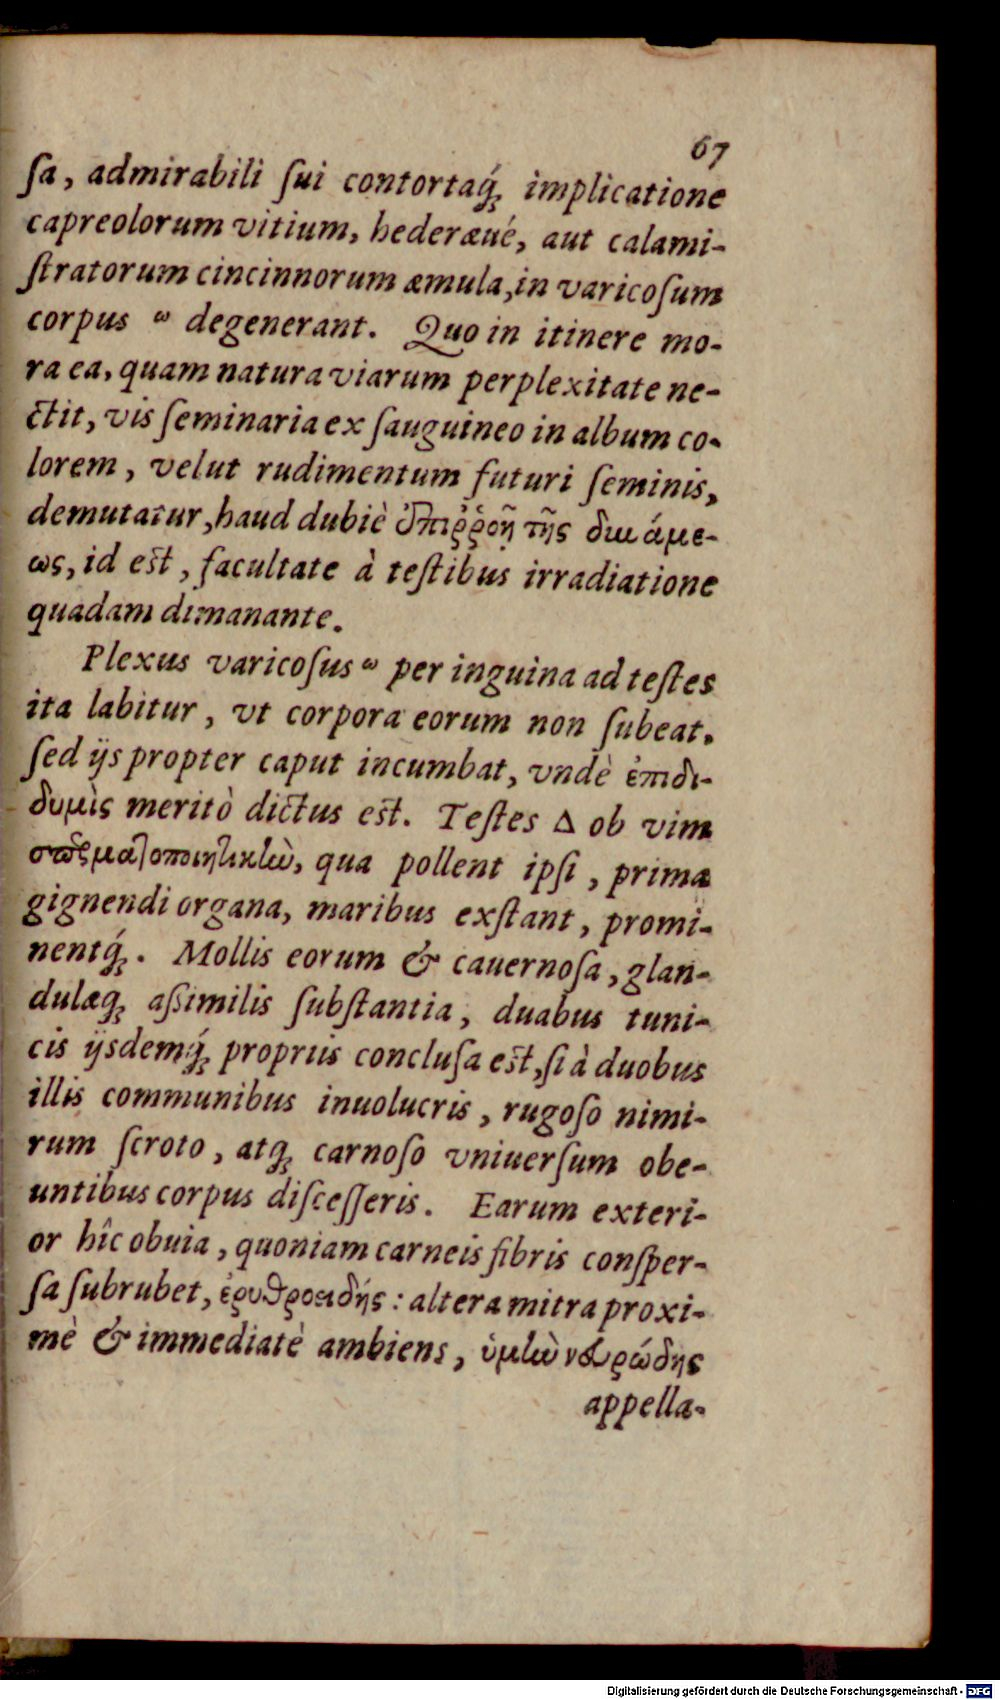 67
ſa, admirabili ſui contortaq́; implicatione
capreolorum vitium, hederæué, aut calami-
ſtratorum cincinnorum æmula, in varicoſum
corpus ω degenerant. Quo in itinere mo-
ra ea, quam natura viarum perplexitate ne-
ctit, vis ſeminaria ex ſanguineo in album co-
lorem, velut rudimentum futuri ſeminis,
demutatur, haud dubiè ἐπιῤῥοῇ τῆς δυνάμε-
ως, id eſt, facultate à teſtibus irradiatione
quadam dimanante.
Plexus varicoſus ω per inguina ad teſtes
ita labitur, vt corpora eorum non ſubeat,
ſed ijs propter caput incumbat, vndè ἐπιδι-
δυμὶς meritò dictus eſt. Teſtes Δ ob vim
σπερματοποιητικὴν, qua pollent ipſi, prima
gignendi organa, maribus exſtant, promi-
nentq́;. Mollis eorum & cauernoſa, glan-
dulæq; aßimilis ſubſtantia, duabus tuni-
cis ijsdemq́; propriis concluſa eſt, ſi à duobus
illis communibus inuolucris, rugoſo nimi-
rum ſcroto, atq; carnoſo vniuerſum obe-
untibus corpus diſceſſeris. Earum exteri-
or hîc obuia, quoniam carneis fibris conſper-
ſa ſubrubet, ἐρυθροειδής: altera mitra proxi-
mè & immediatè ambiens, ὑμὴν νευρώδης
appella-
Digitalisierung gefördert durch die Deutsche Forschungsgemeinschaft - DFG